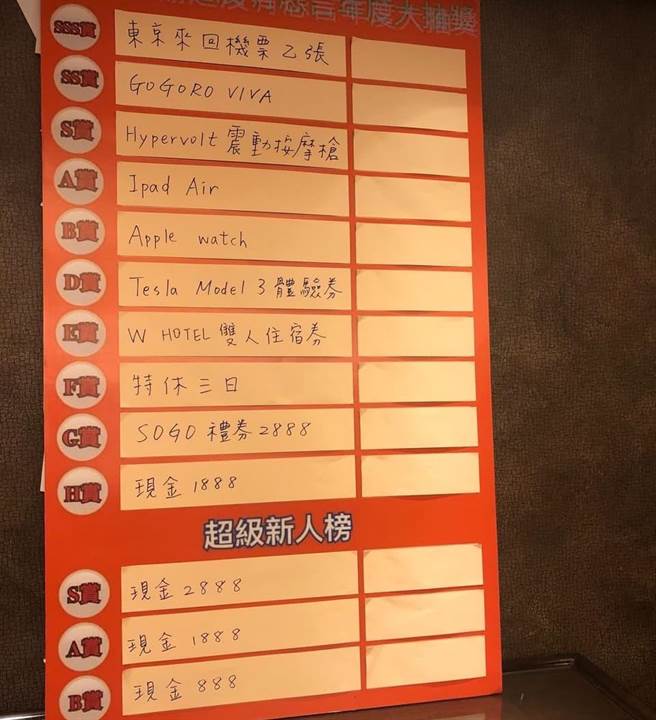 年度大抽獎
SSS賞 東京來回機票乙張
SS賞 GOGORO VIVA
S賞 Hypervolt 震動按摩槍
A賞 Ipad Air
B賞 Apple watch
D賞 Tesla Model 3 體驗券
E賞 W HOTEL 雙人住宿券
F賞 特休三日
G賞 SOGO 禮券2888
H賞 現金 1888
超級新人榜
S賞 現金 2888
A賞 現金 1888
B賞 現金 888